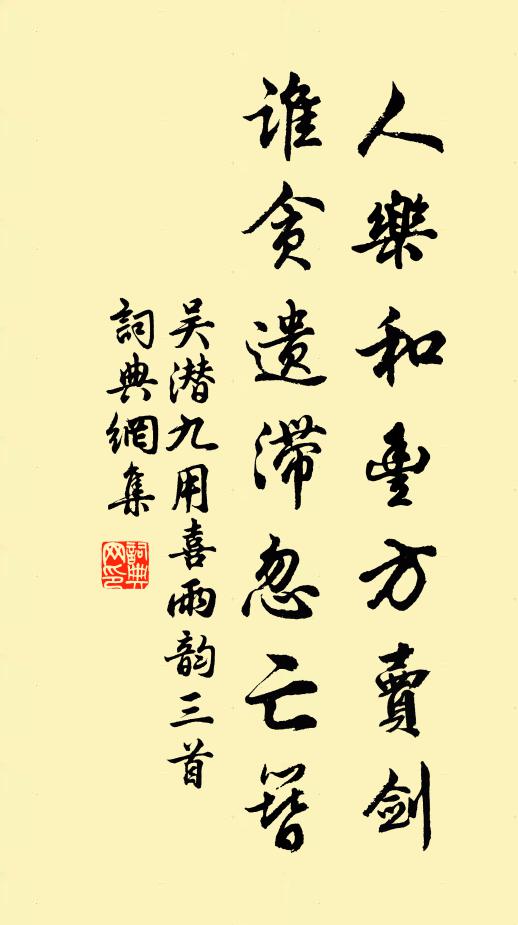 人樂和豐方賣劍
誰貪遺滯忽亡簪
吴潛九用喜雨韵三首
詞典網集
詞典網印